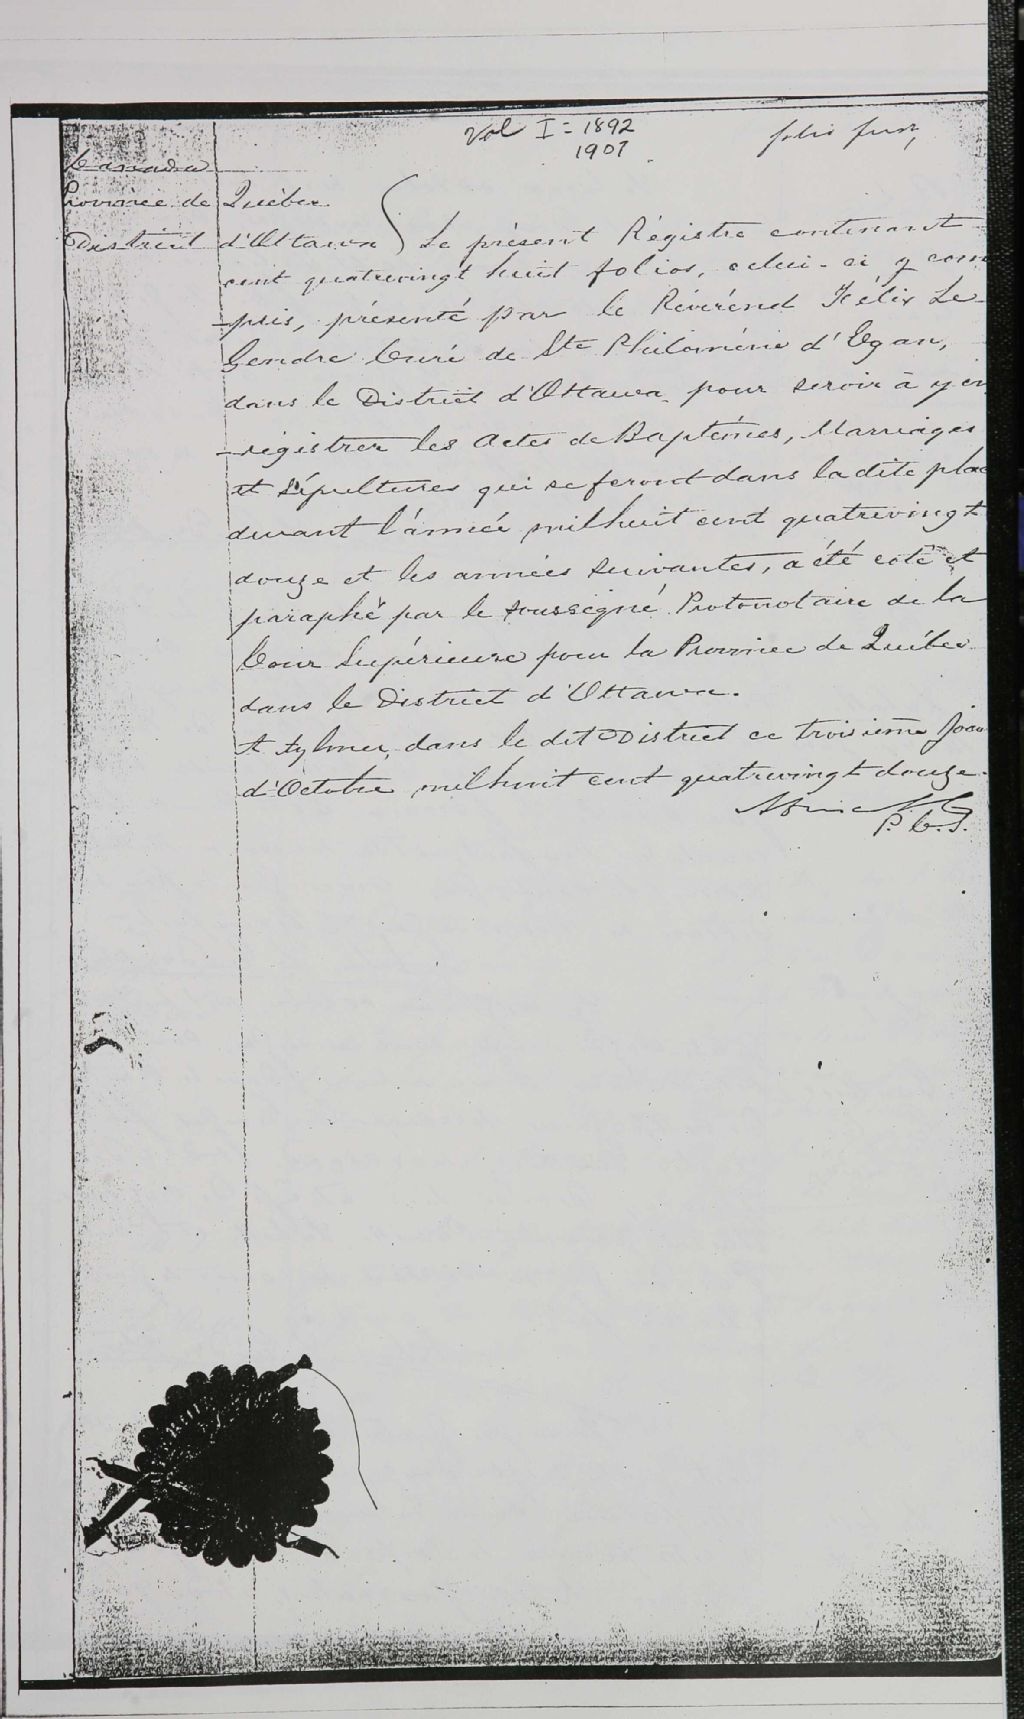 Vol I = 1892
1907
folio
Canada
Province de Québec
District d'Ottawa } Le présent Régistre contenant
cent quatrevingt huit folios, celui-ci y com
-pris, présenté par le Révérend Félix Le
Gendre Curé de Ste Philomène d'Egan,
dans le District d'Ottawa pour servir à y en
-régistrer les Actes de Baptêmes, Marriages
et Sépultures qui se feront dans la dite place
durant l'année mil huit cent quatrevingt
douze et les années suivantes, a été coté et
paraphé par le soussigné Protonotaire de la
Cour Supérieure pour la Province de Québec
dans le District d'Ottawa.
A Aylmer, dans le dit District ce troisième Jour
d'Octobre mil huit cent quatrevingt douze.
P. C. S.